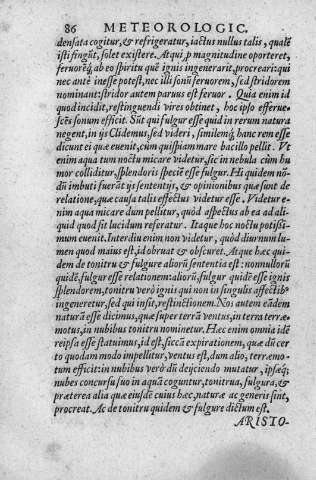 86 METEOROLOGIC.
densata cogitur, & refrigeratur, iactus nullus talis, qualē
isti fingūt, solet existere. Atqui ꝓ magnitudine oporteret,
feruorēq́;, ab eo spiritu quē ignis ingenerarit, procreari: qui
nec ante inesse potest, nec illi sonū feruorem, sed stridorem
nominant: stridor autem paruus est feruor. Quia enim id
quod incidit, restinguendi vires obtinet, hoc ipso efferue-
scēs sonum efficit. Sūt qui fulgur esse quid in rerum natura
negent, in ijs Clidemus, sed videri, similemq́; hanc rem esse
dicunt ei quæ euenit, cùm quispiam mare bacillo pellit. Vt
enim aqua tum noctu micare videtur, sic in nebula cùm hu
mor colliditur, splendoris specie esse fulgur. Hi quidem nō-
dū imbuti fuerāt ijs sententijs, & opinionibus quæ sunt de
relatione, quæ causa talis effectus videtur esse. Videtur e-
nim aqua micare dum pellitur, quòd aspectus ab ea ad ali-
quid quod sit lucidum referatur. Itaque hoc noctu potissi-
mum euenit. Interdiu enim non videtur, quòd diurnum lu-
men quod maius est, id obruat & obscuret. Atque hæc qui-
dem de tonitru & fulgure aliorū sententia est: nonnullorū
quidē, fulgur esse relationem: aliorū, fulgur quidē esse ignis
splendorem, tonitru verò ignis qui non in singulis affectib⁹
ingeneretur, sed qui insit, restinctionem. Nos autem eādem
naturā esse dicimus, quæ super terrā ventus, in terra terræ-
motus, in nubibus tonitru nominetur. Hæc enim omnia idē
reipsa esse statuimus, id est, siccā expirationem, quæ dū cer
to quodam modo impellitur, ventus est, dum alio, terræmo-
tum efficit: in nubibus verò dū deijciendo mutatur, ipsæq́;
nubes concursu suo in aquā coguntur, tonitrua, fulgura, &
præterea alia quæ eiusdē cuius hæc, naturæ ac generis sint,
procreat. Ac de tonitru quidem & fulgure dictum est.
ARISTO-